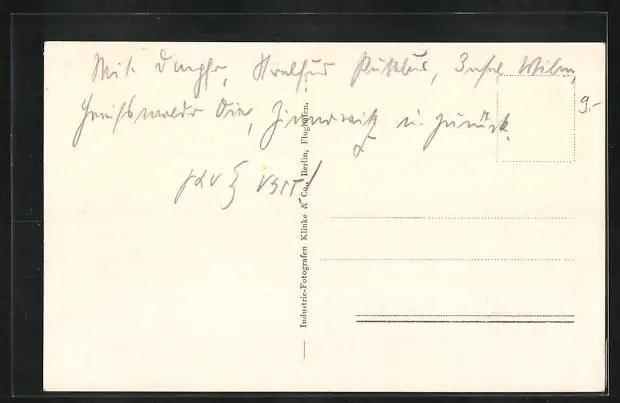 Mit Dampfer, Stralsund Putbus, Insel Vilm,
Greifswalder Oie, Zinnowitz u. zurück.
9.-
Industrie-Fotografen Klinke & Co., Berlin, Flughafen.